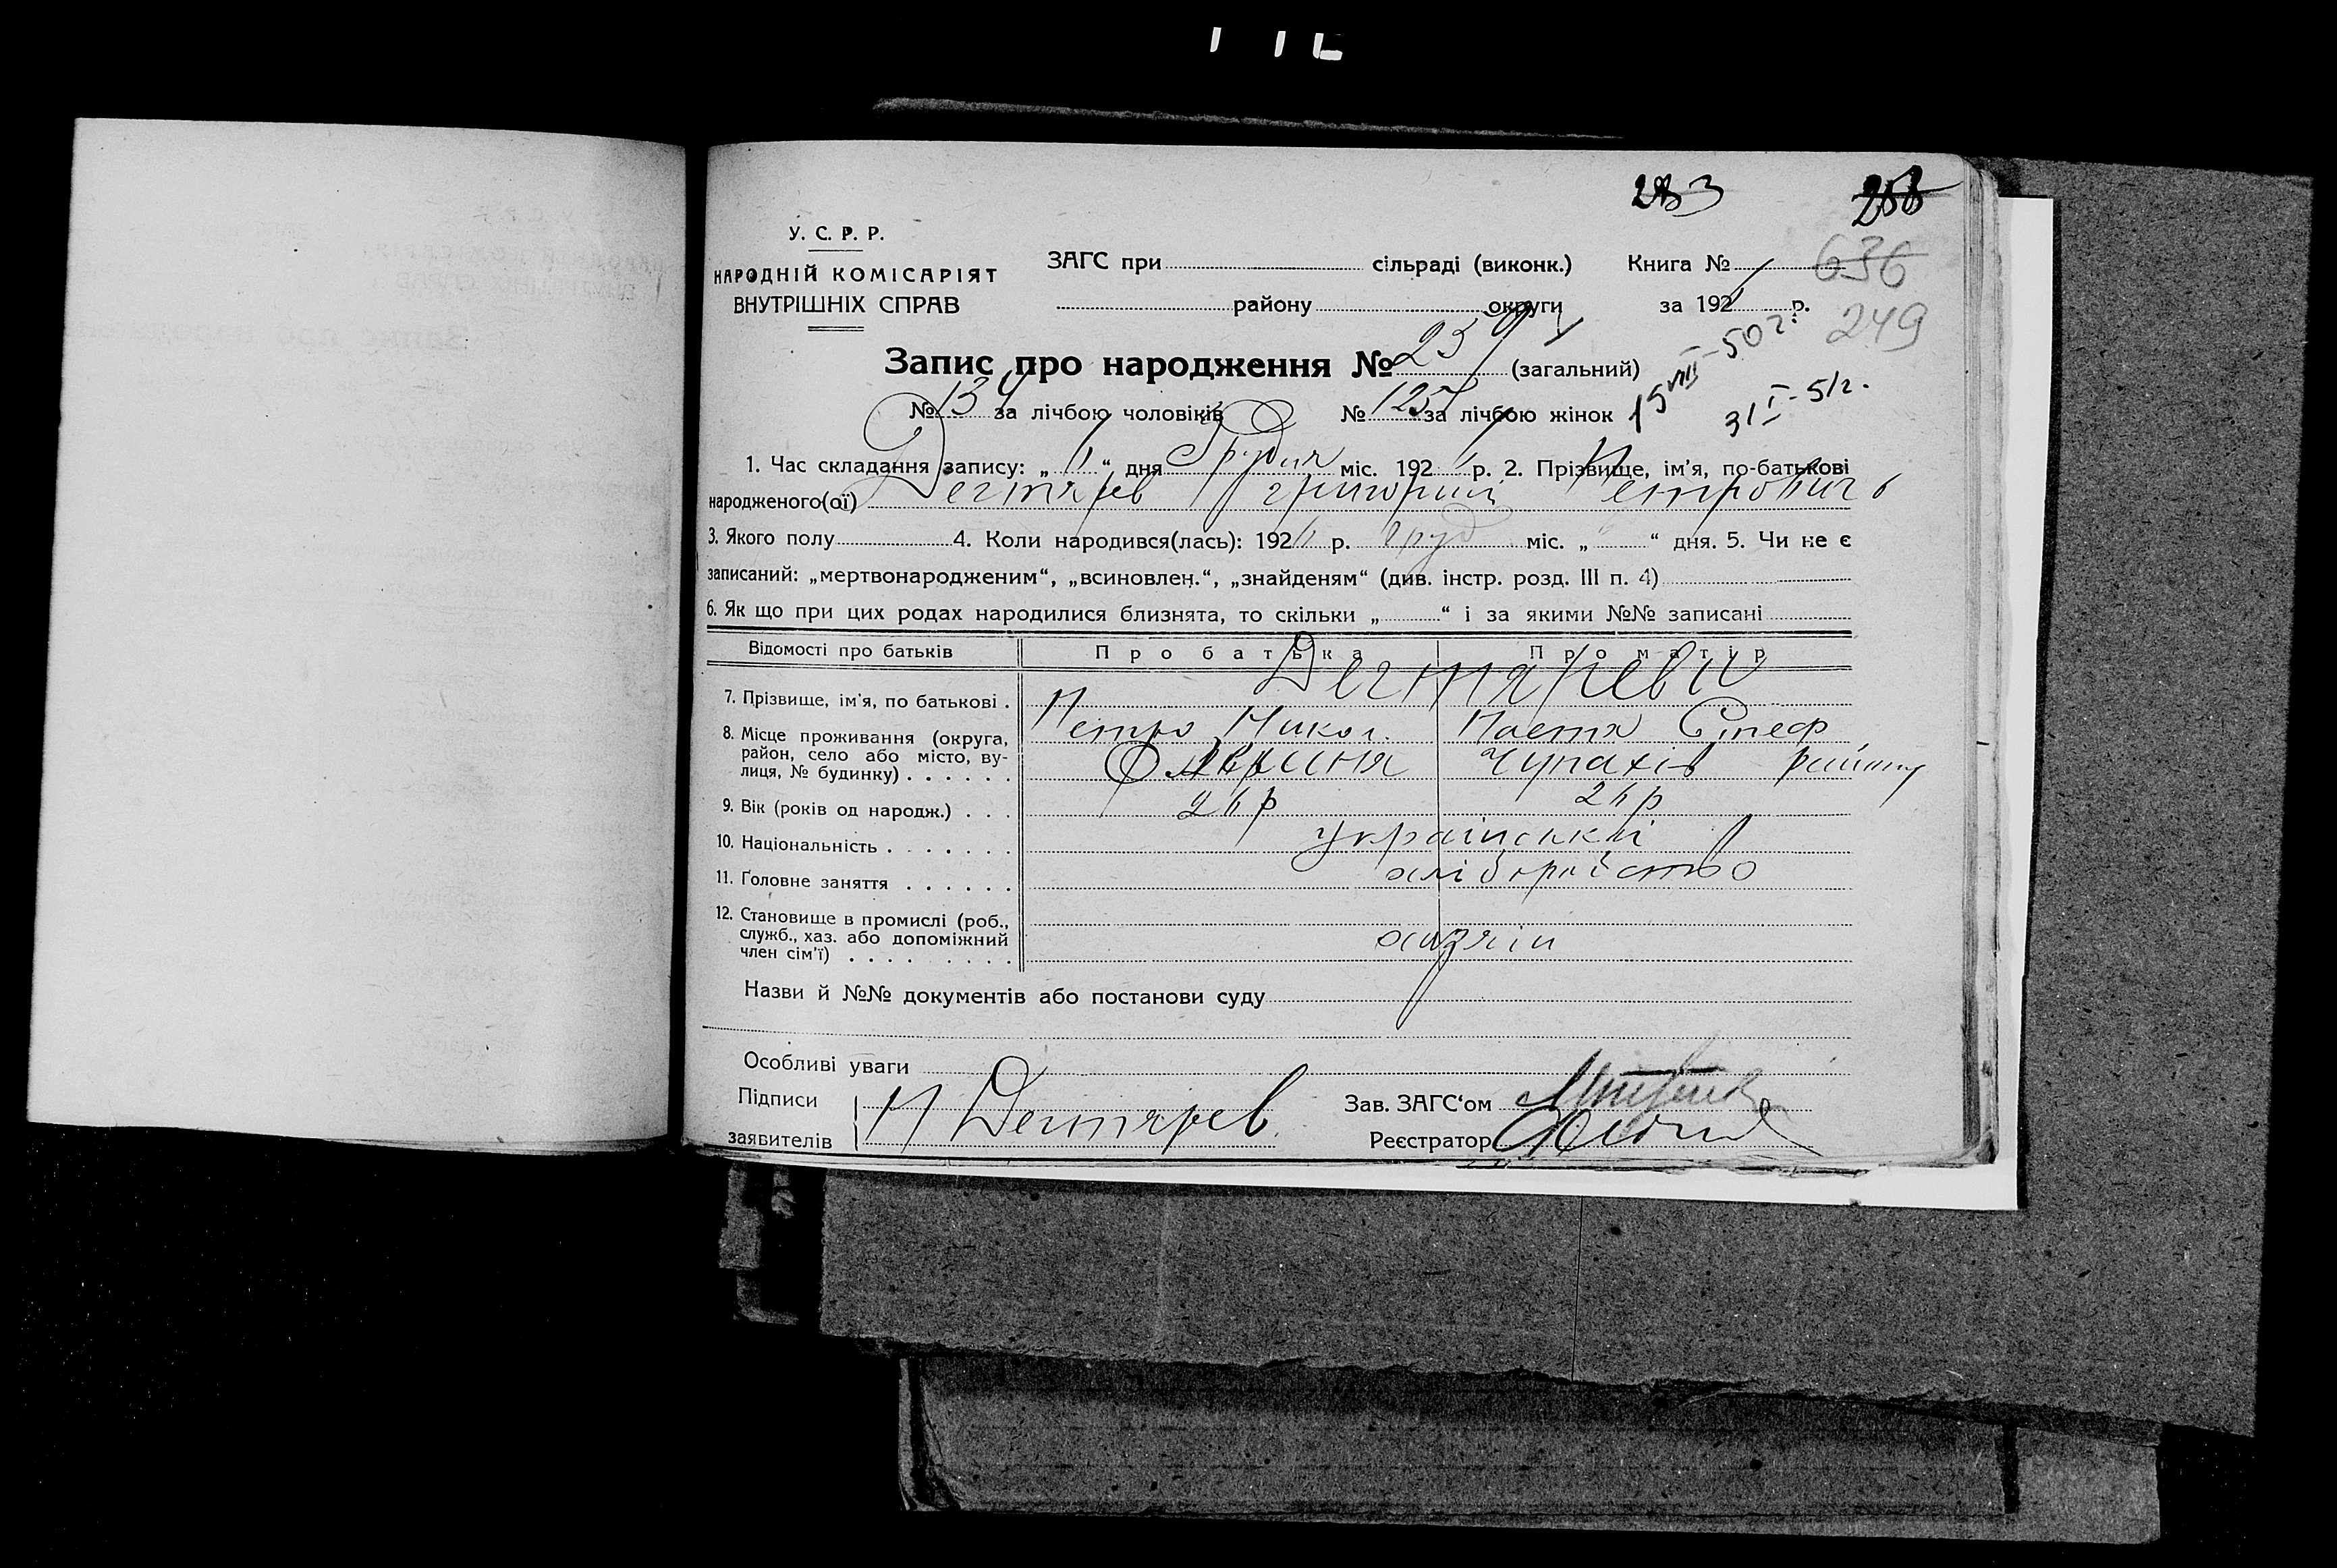 283 258
У. С. Р. Р.
НАРОДНІЙ КОМІСАРІЯТ
ВНУТРІШНІХ СПРАВ
ЗАГС при сільраді (виконк.) Книга № 636
району округи за 192 р. 249
Запис про народження № 259 (загальний)
№ 134 за лічбою чоловіків № 125 за лічбою жінок
15 VIII - 50 г.
31 I - 51 г.
1. Час складання запису: „ “ дня Грудня міс. 192 р. 2. Прізвище, ім’я, по-батькові
народженого(ої) Дегтярев Григорий Петрович
3. Якого полу 4. Коли народився(лась): 192 р. груд міс. „ “ дня. 5. Чи не є
записаний: „мертвонародженим“, „всиновлен.“, „знайденям“ (див. інстр. розд. III п. 4)
6. Як що при цих родах народилися близнята, то скільки „ “ і за якими №№ записані
Відомості про батьків Про батька Про матір
7. Прізвище, ім’я, по батькові . Дегтяреви
Петро Никол. Настя Стеф
8. Місце проживання (округа,
район, село або місто, ву-
лиця, № будинку) . . . . . . Чупахів району
9. Вік (років од народж.) . . . 26 р 26 р
10. Національність . . . . . . . український
11. Головне заняття . . . . . . хліборобство
12. Становище в промислі (роб.,
служб., хаз. або допоміжний
член сім’ї) . . . . . . . . . хазяїн
Назви й №№ документів або постанови суду
Особливі уваги
Підписи
заявителів П Дегтярев
Зав. ЗАГС‘ом
Реєстратор